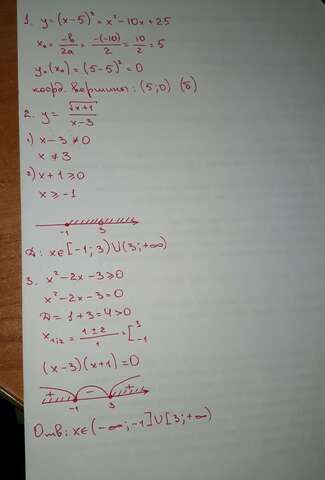 1. y=(x-5)²=x²-10x+25
x₀=-b/2a=-(-10)/2=10/2=5
y₀(x₀)=(5-5)²=0
коорд. вершины: (5;0) (б)
2. y=√(x+1)/(x-3)
1) x-3≠0
x≠3
2) x+1≥0
x≥-1
-1 3
Д: x∈[-1;3)∪(3;+∞)
3. x²-2x-3≥0
x²-2x-3=0
Д=1+3=4>0
x₁;₂=(1±2)/1=[3 -1
(x-3)(x+1)=0
+ - +
-1 3
Отв: x∈(-∞;-1]∪[3;+∞)